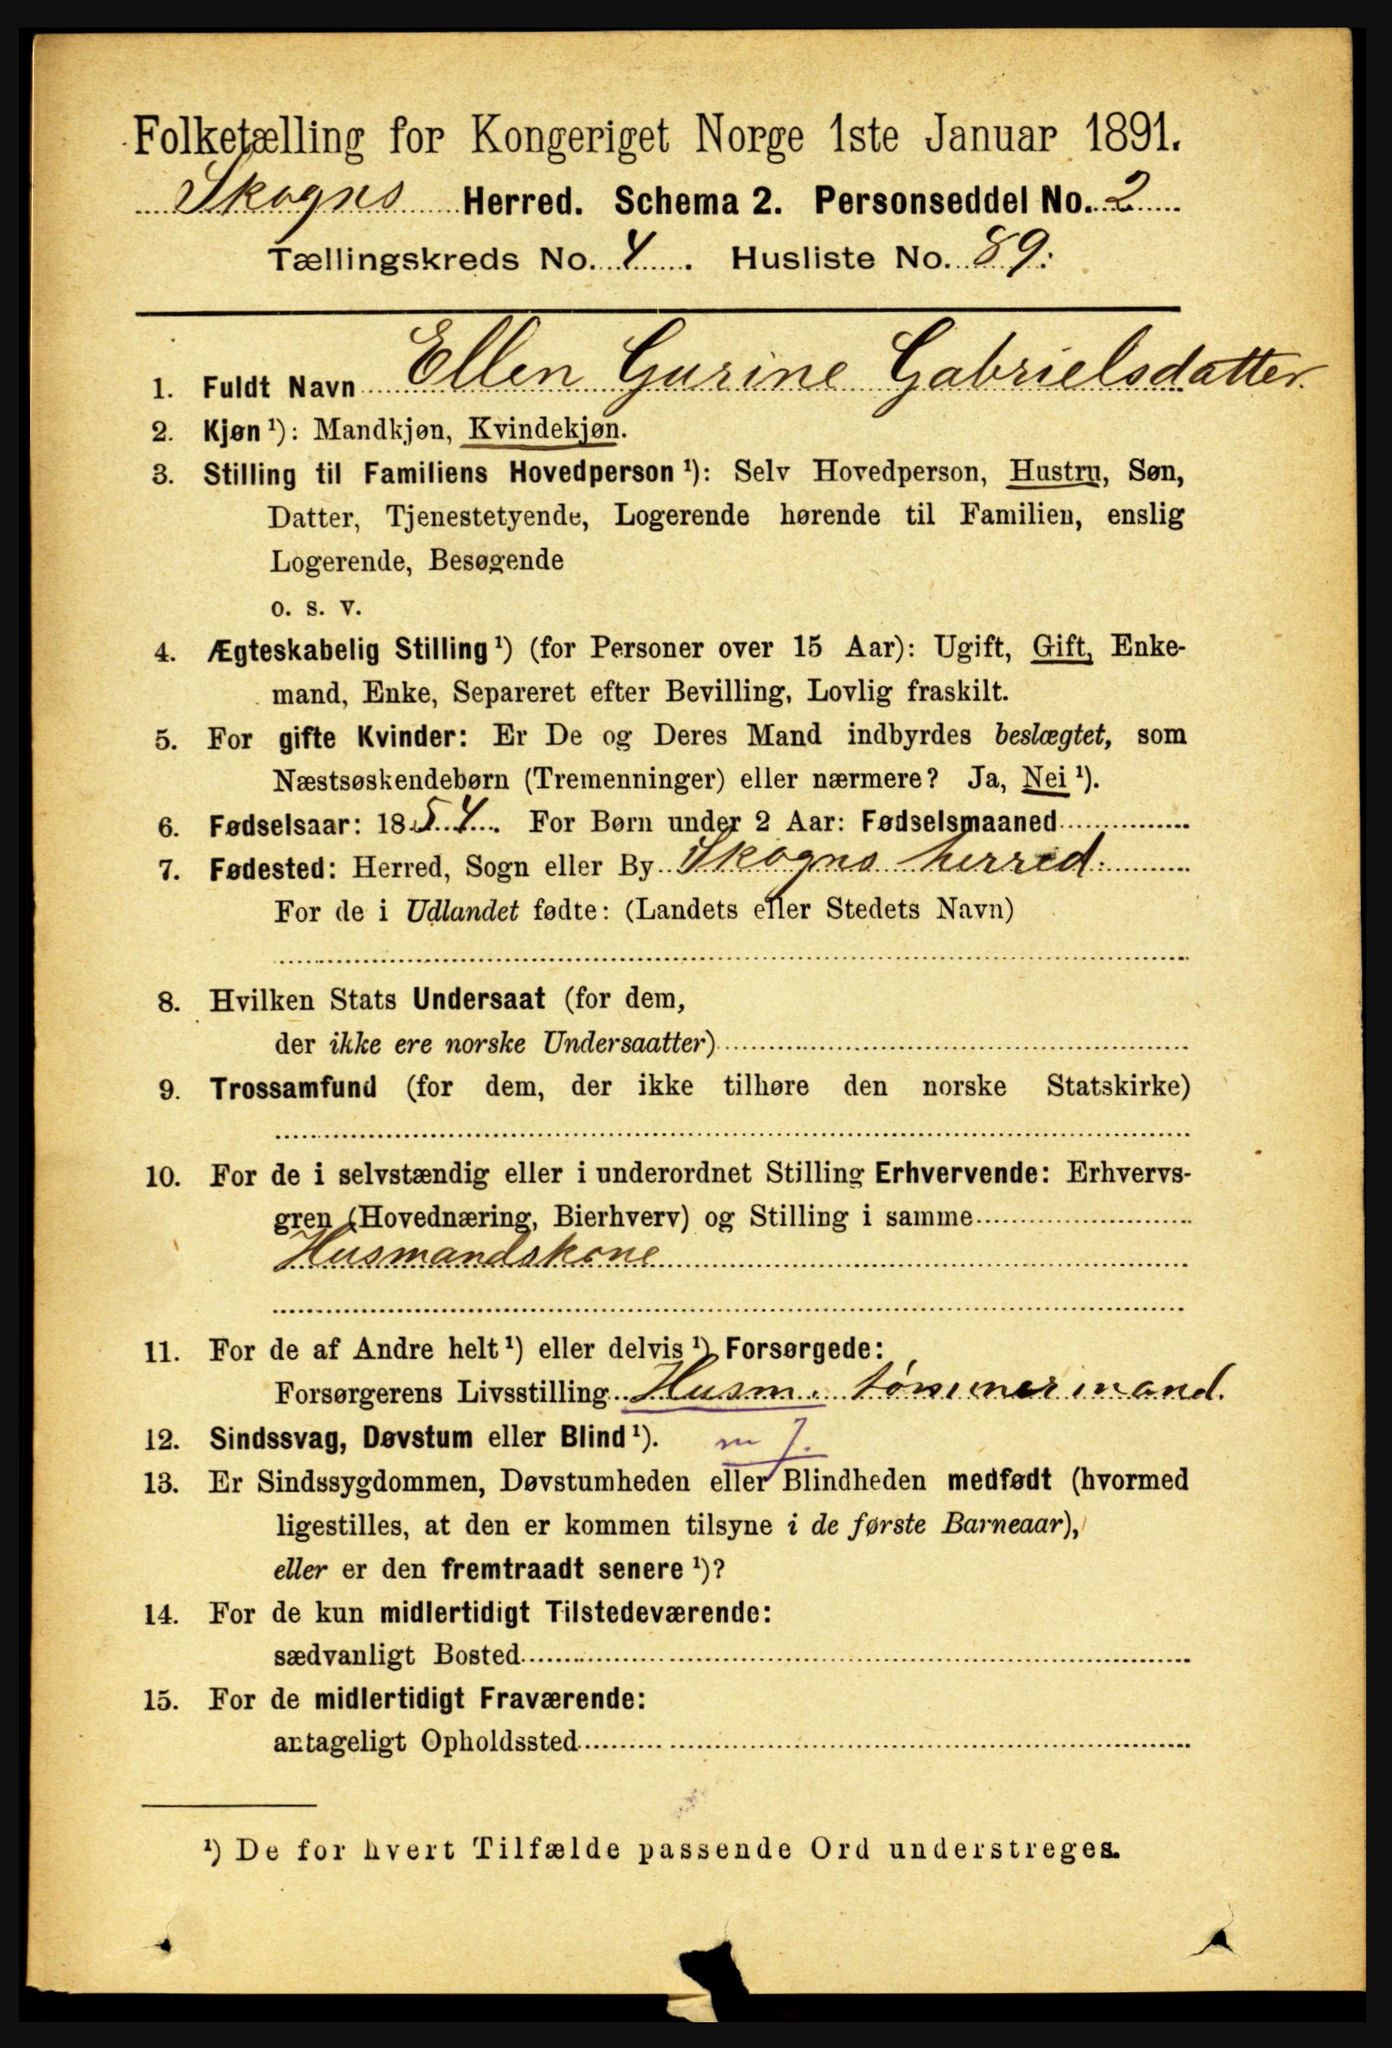 Folketælling for Kongeriget Norge 1ste Januar 1891.
Skogns Herred. Schema 2. Personseddel No. 2
Tællingskreds No. 4. Husliste No. 89.
1. Fuldt Navn Ellen Gurine Gabrielsdatter.
2. Kjøn ¹): Mandkjøn, Kvindekjøn.
3. Stilling til Familiens Hovedperson ¹): Selv Hovedperson, Hustru, Søn,
Datter, Tjenestetyende, Logerende hørende til Familien, enslig
Logerende, Besøgende
o. s. v.
4. Ægteskabelig Stilling ¹) (for Personer over 15 Aar): Ugift, Gift, Enke-
mand, Enke, Separeret efter Bevilling, Lovlig fraskilt.
5. For gifte Kvinder: Er De og Deres Mand indbyrdes beslægtet, som
Næstsøskendebørn (Tremenninger) eller nærmere? Ja, Nei ¹).
6. Fødselsaar: 1854. For Børn under 2 Aar: Fødselsmaaned
7. Fødested: Herred, Sogn eller By Skogns herred.
For de i Udlandet fødte: (Landets eller Stedets Navn)
8. Hvilken Stats Undersaat (for dem,
der ikke ere norske Undersaatter)
9. Trossamfund (for dem, der ikke tilhøre den norske Statskirke)
10. For de i selvstændig eller i underordnet Stilling Erhvervende: Erhvervs-
gren (Hovednæring, Bierhverv) og Stilling i samme
Husmandskone
11. For de af Andre helt ¹) eller delvis ¹) Forsørgede:
Forsørgerens Livsstilling Husm. tømmermand.
12. Sindssvag, Døvstum eller Blind ¹). m J.
13. Er Sindssygdommen, Døvstumheden eller Blindheden medfødt (hvormed
ligestilles, at den er kommen tilsyne i de første Barneaar),
eller er den fremtraadt senere ¹)?
14. For de kun midlertidigt Tilstedeværende:
sædvanligt Bosted
15. For de midlertidigt Fraværende:
antageligt Opholdssted
¹) De for hvert Tilfælde passende Ord understreges.